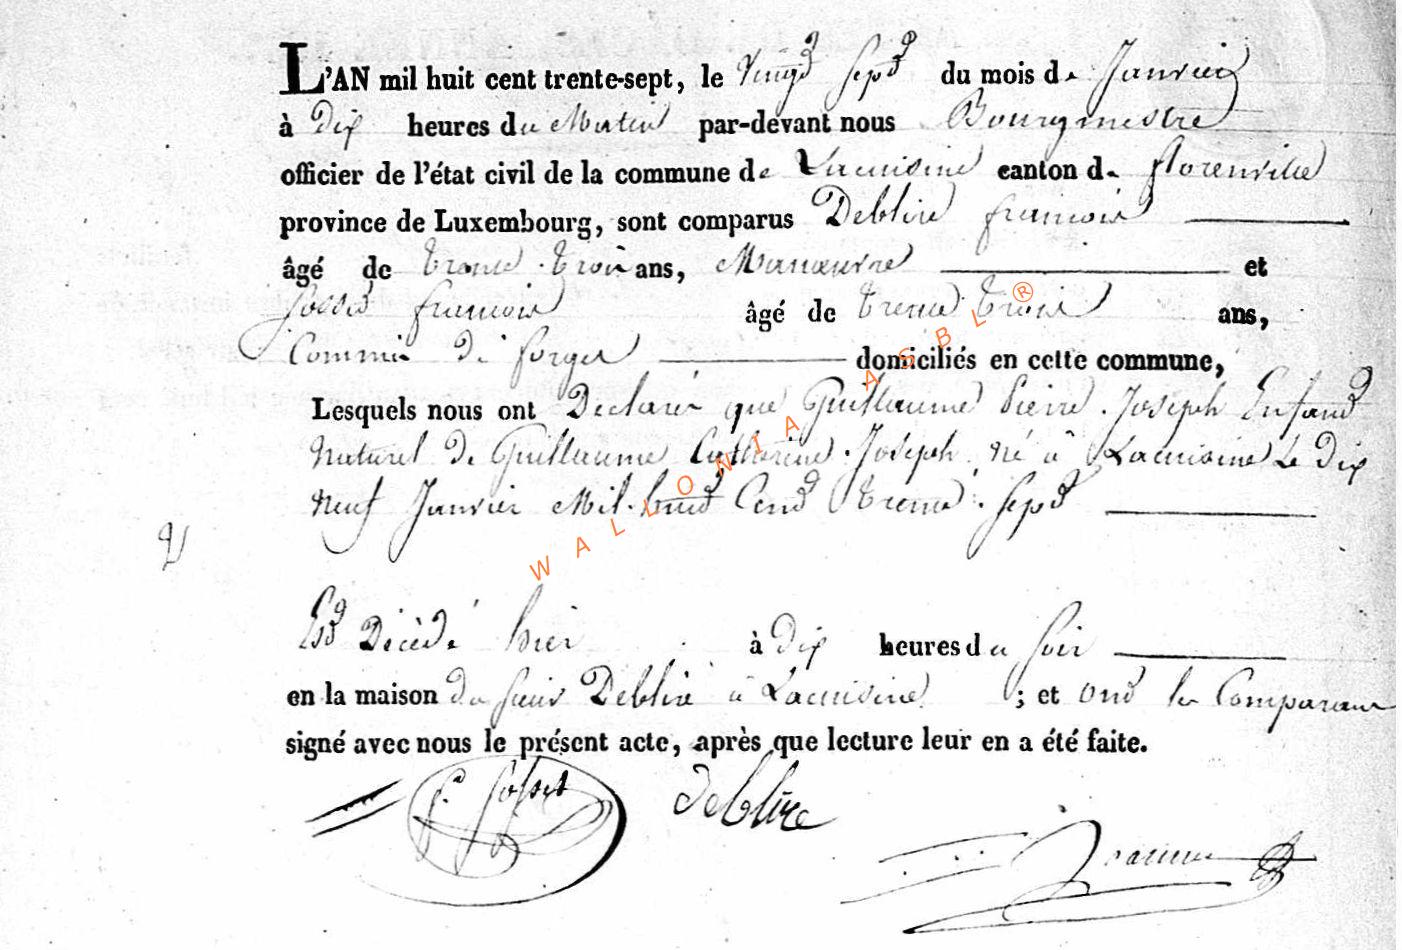 L'AN mil huit cent trente-sept, le Vingt Sept du mois de Janvier
à Dix heures du Matin par-devant nous Bourgmestre
officier de l'état civil de la commune de Lacuisine canton de florenville
province de Luxembourg, sont comparus Deblire francois
âgé de trente trois ans, Manœuvre et
Josset francois âgé de trente trois ans,
Commis de forges domiciliés en cette commune,
Lesquels nous ont Déclaré que Guillaume Pierre Joseph Enfant
Naturel de Guillaume Catherine Joseph né à Lacuisine Le Dix
neuf Janvier Mil huit Cent trente Sept
Est Décédé hier à Dix heures du Soir
en la maison du sieur Deblire à Lacuisine ; et ont les Comparants
signé avec nous le présent acte, après que lecture leur en a été faite.
deblire
WALLONIA ASBL ®